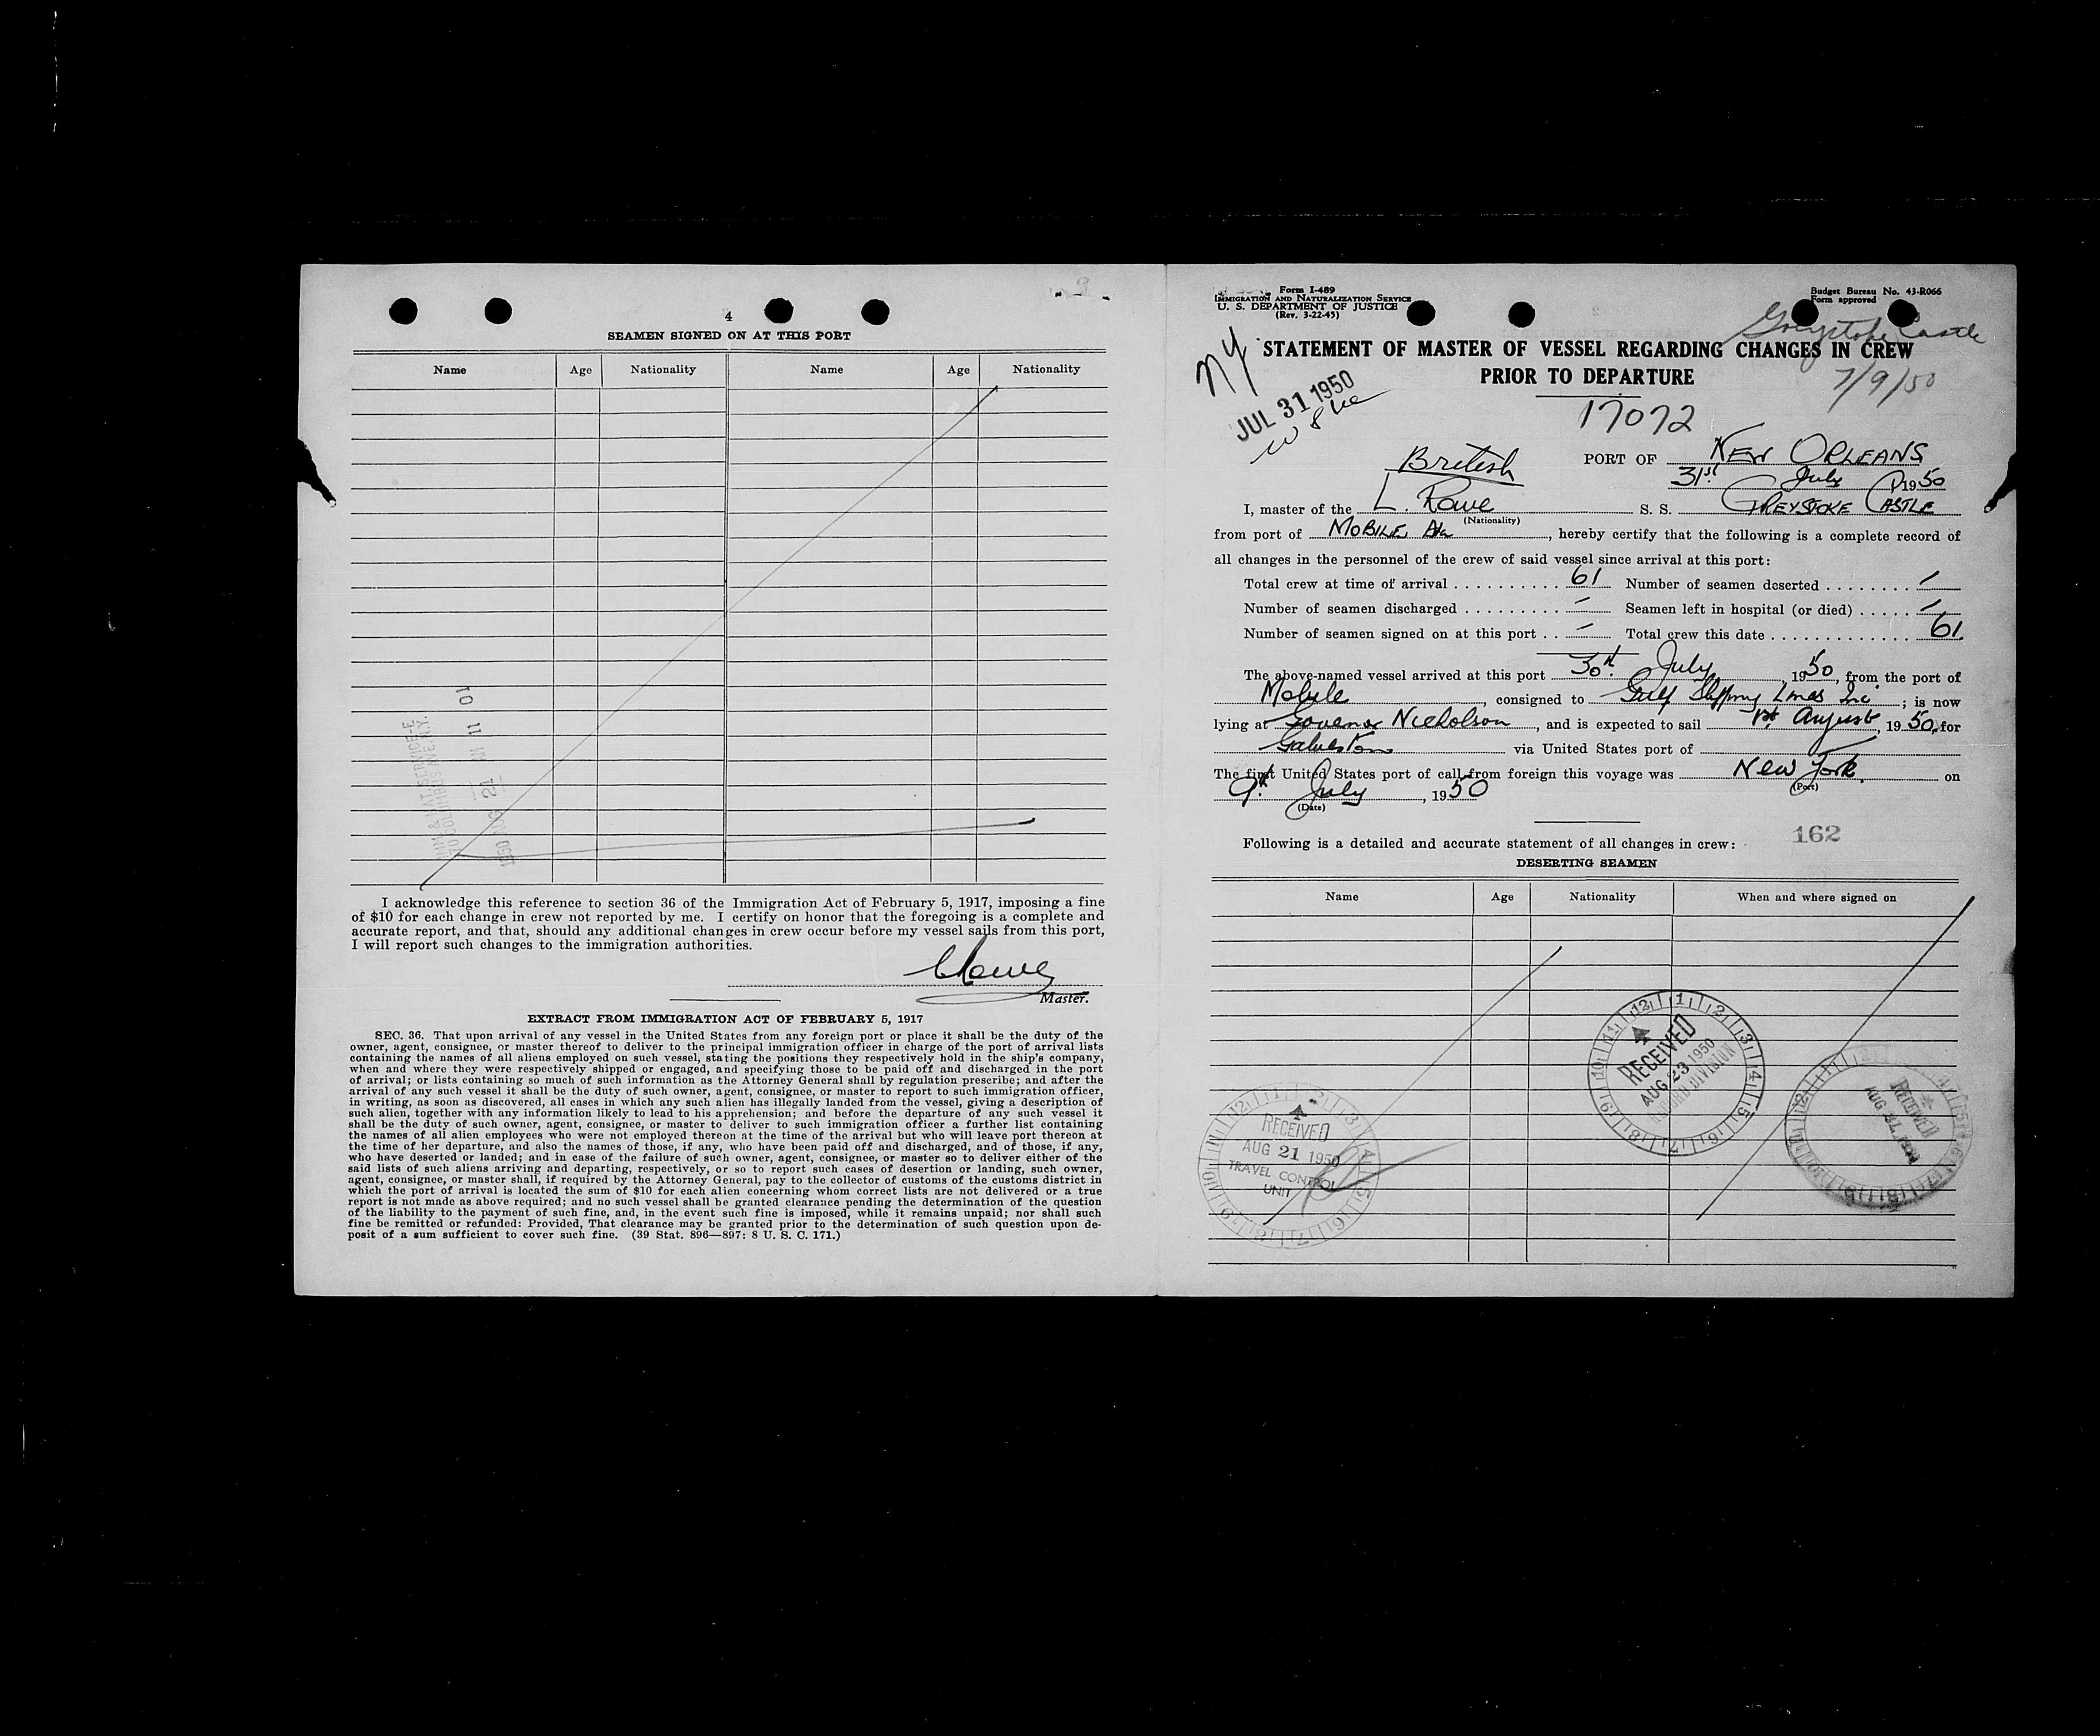 4
SEAMEN SIGNED ON AT THIS PORT
Name Age Nationality Name Age Nationality
1950 AUG 21 AM 11 01
I acknowledge this reference to section 36 of the Immigration Act of February 5, 1917, imposing a fine
of $10 for each change in crew not reported by me. I certify on honor that the foregoing is a complete and
accurate report, and that, should any additional changes in crew occur before my vessel sails from this port,
I will report such changes to the immigration authorities.
Master.
EXTRACT FROM IMMIGRATION ACT OF FEBRUARY 5, 1917
SEC. 36. That upon arrival of any vessel in the United States from any foreign port or place it shall be the duty of the
owner, agent, consignee, or master thereof to deliver to the principal immigration officer in charge of the port of arrival lists
containing the names of all aliens employed on such vessel, stating the positions they respectively hold in the ship's company,
when and where they were respectively shipped or engaged, and specifying those to be paid off and discharged in the port
of arrival; or lists containing so much of such information as the Attorney General shall by regulation prescribe; and after the
arrival of any such vessel it shall be the duty of such owner, agent, consignee, or master to report to such immigration officer,
in writing, as soon as discovered, all cases in which any such alien has illegally landed from the vessel, giving a description of
such alien, together with any information likely to lead to his apprehension; and before the departure of any such vessel it
shall be the duty of such owner, agent, consignee, or master to deliver to such immigration officer a further list containing
the names of all alien employees who were not employed thereon at the time of the arrival but who will leave port thereon at
the time of her departure, and also the names of those, if any, who have been paid off and discharged, and of those, if any,
who have deserted or landed; and in case of the failure of such owner, agent, consignee, or master so to deliver either of the
said lists of such aliens arriving and departing, respectively, or so to report such cases of desertion or landing, such owner,
agent, consignee, or master shall, if required by the Attorney General, pay to the collector of customs of the customs district in
which the port of arrival is located the sum of $10 for each alien concerning whom correct lists are not delivered or a true
report is not made as above required; and no such vessel shall be granted clearance pending the determination of the question
of the liability to the payment of such fine, and, in the event such fine is imposed, while it remains unpaid; nor shall such
fine be remitted or refunded: Provided, That clearance may be granted prior to the determination of such question upon de-
posit of a sum sufficient to cover such fine. (39 Stat. 896—897; 8 U. S. C. 171.)
Form I-489
IMMIGRATION AND NATURALIZATION SERVICE
U. S. DEPARTMENT OF JUSTICE
(Rev. 3-22-45)
Budget Bureau No. 43-R066
Form approved
Greystoke Castle
NY
STATEMENT OF MASTER OF VESSEL REGARDING CHANGES IN CREW
PRIOR TO DEPARTURE
7/9/50
JUL 31 1950
17072
British
PORT OF NEW ORLEANS
31st July 1950
I, master of the L. Rowe S. S. GREYSTOKE CASTLE
(Nationality)
from port of MOBILE Ala, hereby certify that the following is a complete record of
all changes in the personnel of the crew of said vessel since arrival at this port:
Total crew at time of arrival .......... 61 Number of seamen deserted ........ -
Number of seamen discharged ......... - Seamen left in hospital (or died) ..... -
Number of seamen signed on at this port .. - Total crew this date .............. 61
The above-named vessel arrived at this port 30th July, 1950, from the port of
Mobile, consigned to Gulf Shipping Lines Inc; is now
lying at Govenor Nicholson, and is expected to sail 1st August, 1950, for
Galveston via United States port of
The first United States port of call from foreign this voyage was New York. on
(Port)
9th July, 1950
(Date)
Following is a detailed and accurate statement of all changes in crew:
162
DESERTING SEAMEN
Name Age Nationality When and where signed on
RECEIVED
AUG 23 1950
RECORD DIVISION
RECEIVED
AUG 21 1950
TRAVEL CONTROL
UNIT
RECEIVED